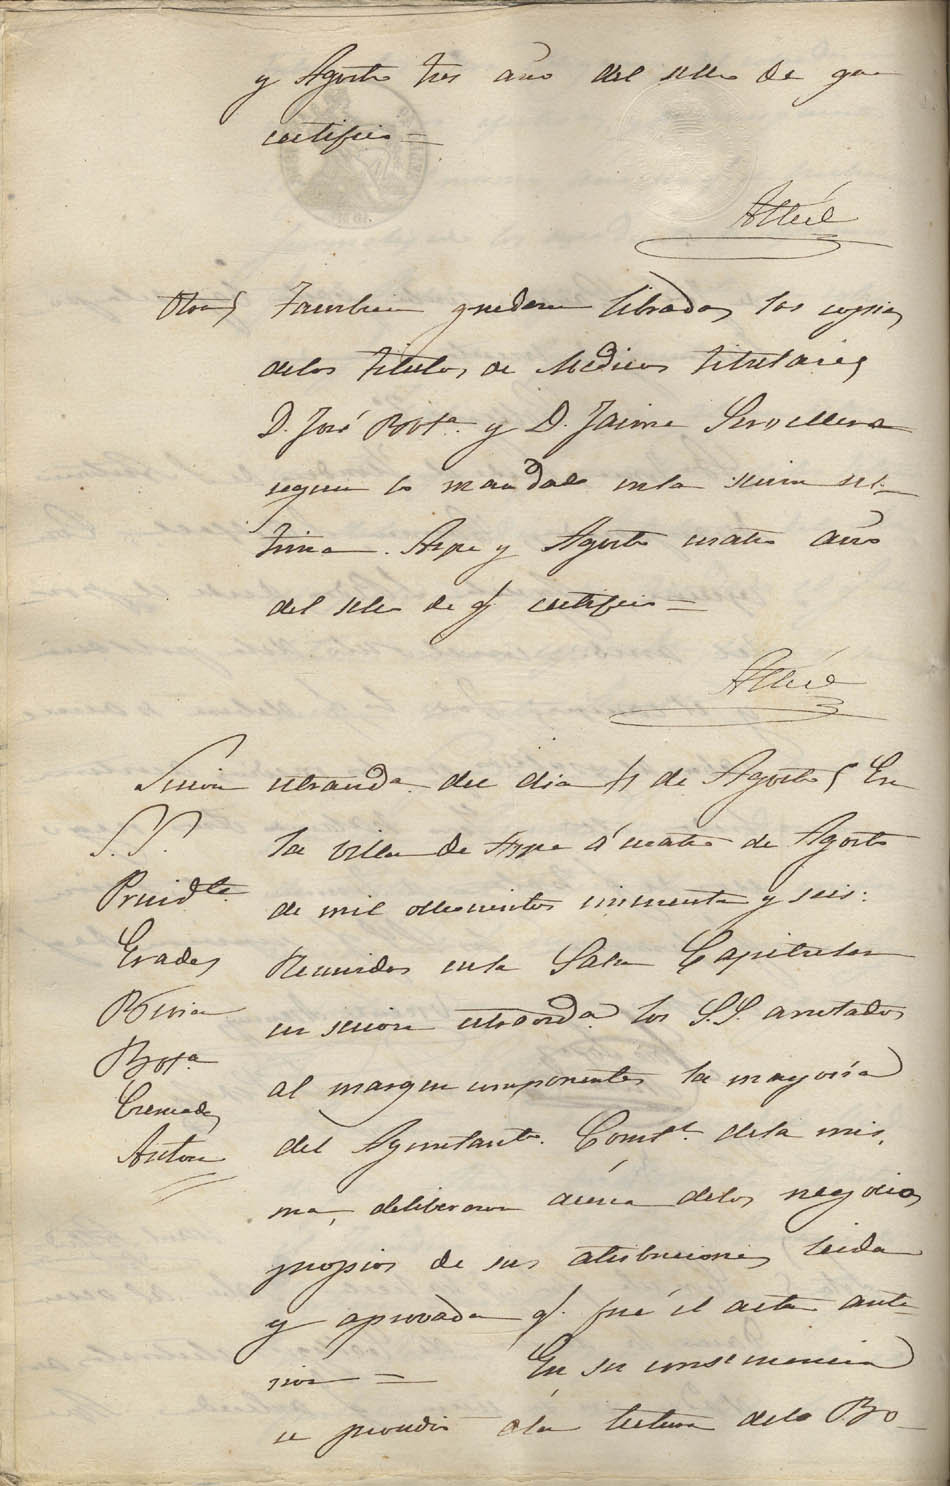 y Agosto tres año del sello de que
certifico =
Otra
Tambien quedan librados las copias
delos titulos de Medicos titulares
D. José Botª. y D. Jaime
segun lo mandado enla sesion ul-
tima. Aspe y Agosto cuatro año
del sello de q. certifico =
Sesion estraordª. del dia 4 de Agosto
En
la villa de Aspe á cuatro de Agosto
de mil ochocientos cincuenta y seis:
Reunidos enla Sala Capitular
en sesion estraordª. los S.S. anotados
al margen componentes la mayoría
del Ayuntamto. Constl. dela mis-
ma, deliberaron acérca delos negocios
propios de sus atribuciones leida
y aprovada q. fué el acta ante-
rior = En su consecuencia
se procedió ala lectura delo Bo-
S.S.
Presidte.
Botª.
Cremades
Anton